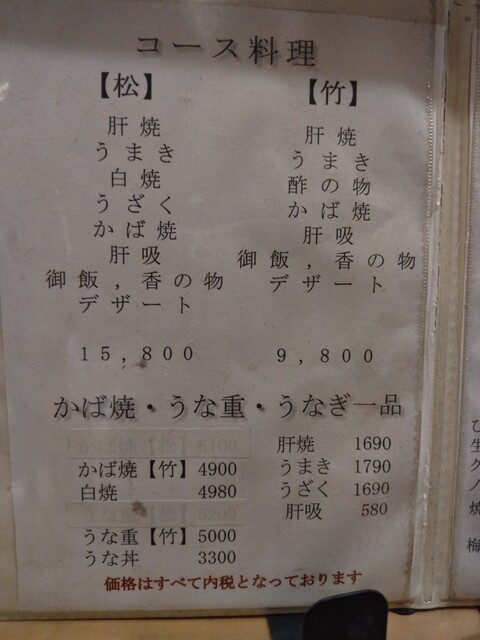 コース料理
【松】
肝焼
うまき
白焼
うざく
かば焼
肝吸
御飯,香の物
デザート
15,800
【竹】
肝焼
うまき
酢の物
かば焼
肝吸
御飯,香の物
デザート
9,800
かば焼・うな重・うなぎ一品
かば焼【松】6100
かば焼【竹】4900
白焼 4980
うな重【竹】5000
うな丼 3300
肝焼 1690
うまき 1790
うざく 1690
肝吸 580
価格はすべて内税となっております